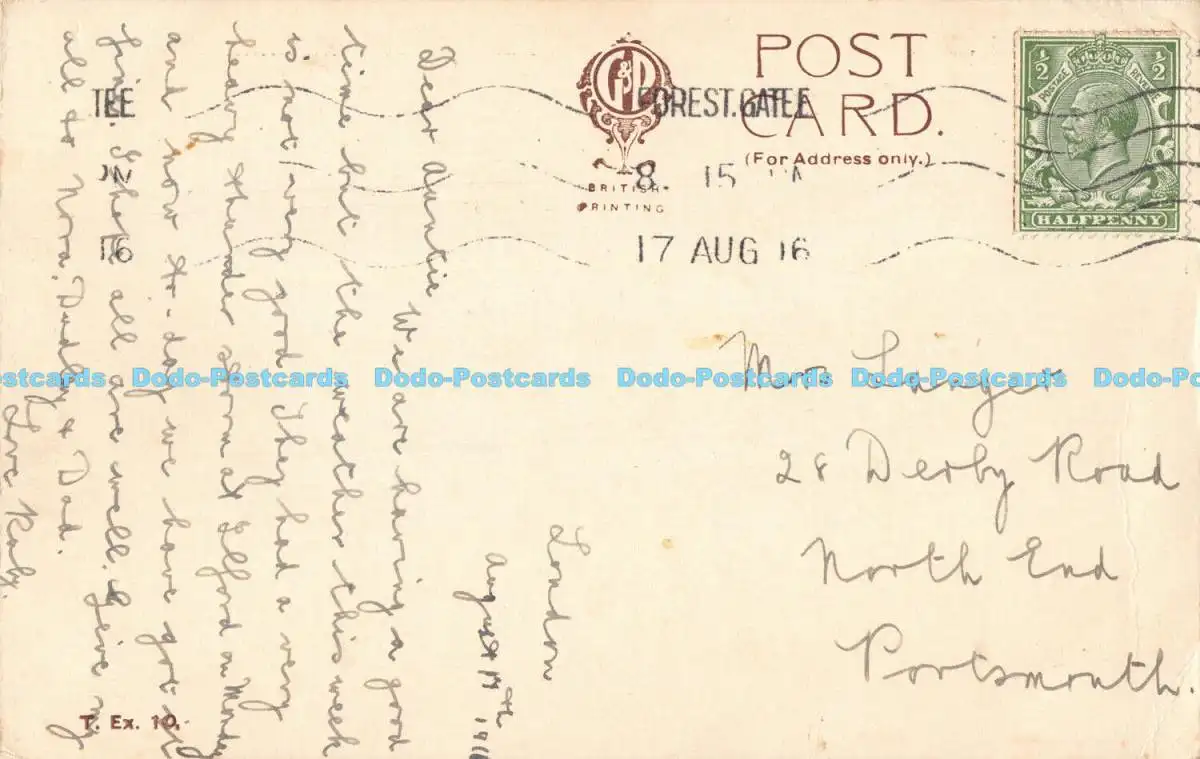 POST
CARD.
(For Address only.)
BRITISH
PRINTING
½ ½
POSTAGE REVENUE
HALFPENNY
FOREST.GATE.E
8 15
17 AUG 16
TE.E
16
London
August 17th 1916
Dear Auntie
We are having a good
time but the weather this week
is not very good They had a very
heavy thunder storm at Ilford on Monday
and now to-day we have got it
fine. I hope all are well. Give my
all to Nora, Dudley & Dad.
Love Ruby.
Mrs. Sanger
28 Derby Road
North End
Portsmouth.
T. Ex. 10.
Dodo-Postcards Dodo-Postcards Dodo-Postcards Dodo-Postcards